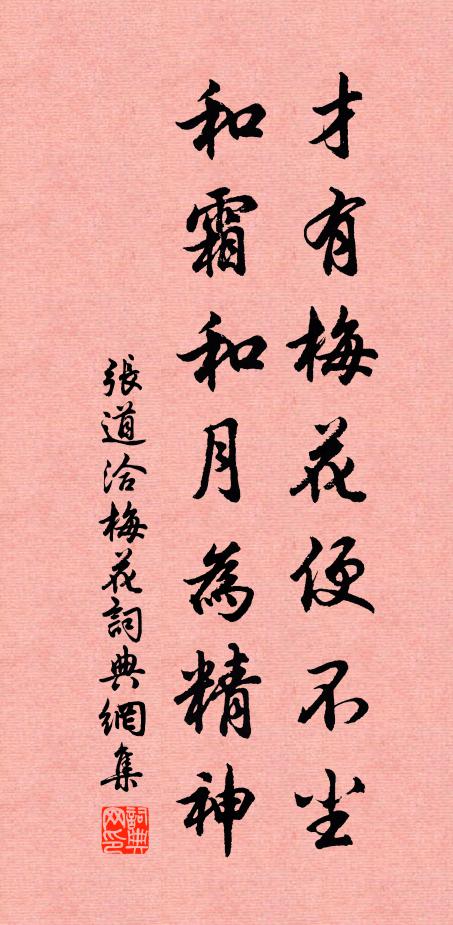 才有梅花便不尘
和霜和月為精神
張道洽梅花詞典網集
詞典网印